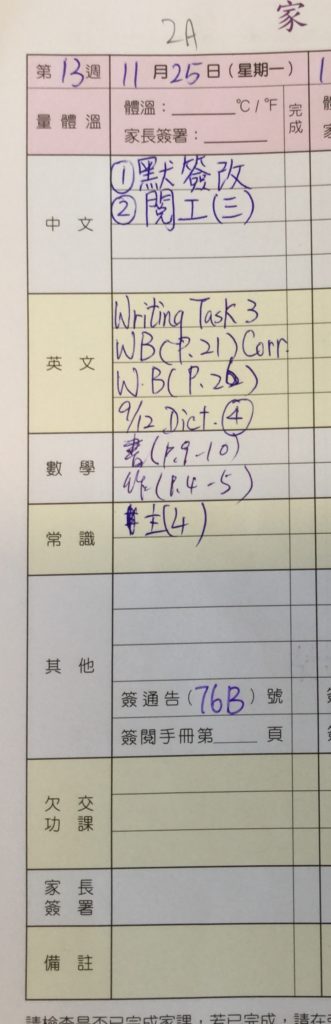 家
2A
第13週 11月25日(星期一)
量體溫 體溫:______°C/°F 完成
家長簽署:______
中文 ①默簽改
②閱工(三)
英文 Writing Task 3
WB(P.21) Corr.
W.B(P.26)
9/12 Dict. ④
數學 書(P.9-10)
作(P.4-5)
常識 主(4)
其他
簽通告(76B)號
簽閱手冊第____頁
欠交功課
家長簽署
備註
請檢查是否已完成家課,若已完成,請在